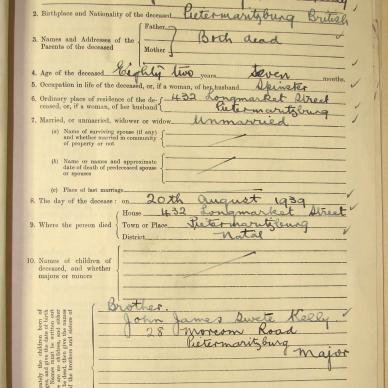 2. Birthplace and Nationality of the deceased Pietermaritzburg British
3. Names and Addresses of the Parents of the deceased
Father
Mother
Both dead
4. Age of the deceased Eighty two years Seven months.
5. Occupation in life of the deceased, or, if a woman, of her husband Spinster
6. Ordinary place of residence of the de-
ceased, or, if a woman, of her husband
432 Longmarket Street
Pietermaritzburg
7. Married, or unmarried, widower or widow Unmarried
(a) Name of surviving spouse (if any)
and whether married in community
of property or not
(b) Name or names and approximate
date of death of predeceased spouse
or spouses
(c) Place of last marriage
8. The day of the decease: on 20th August 1939
9. Where the person died
House 432 Longmarket Street
Town or Place Pietermaritzburg
District Natal
10. Names of children of
deceased, and whether
majors or minors
Brother.
John James Swete Kelly.
28 Morcom Road
Pietermaritzburg
Major